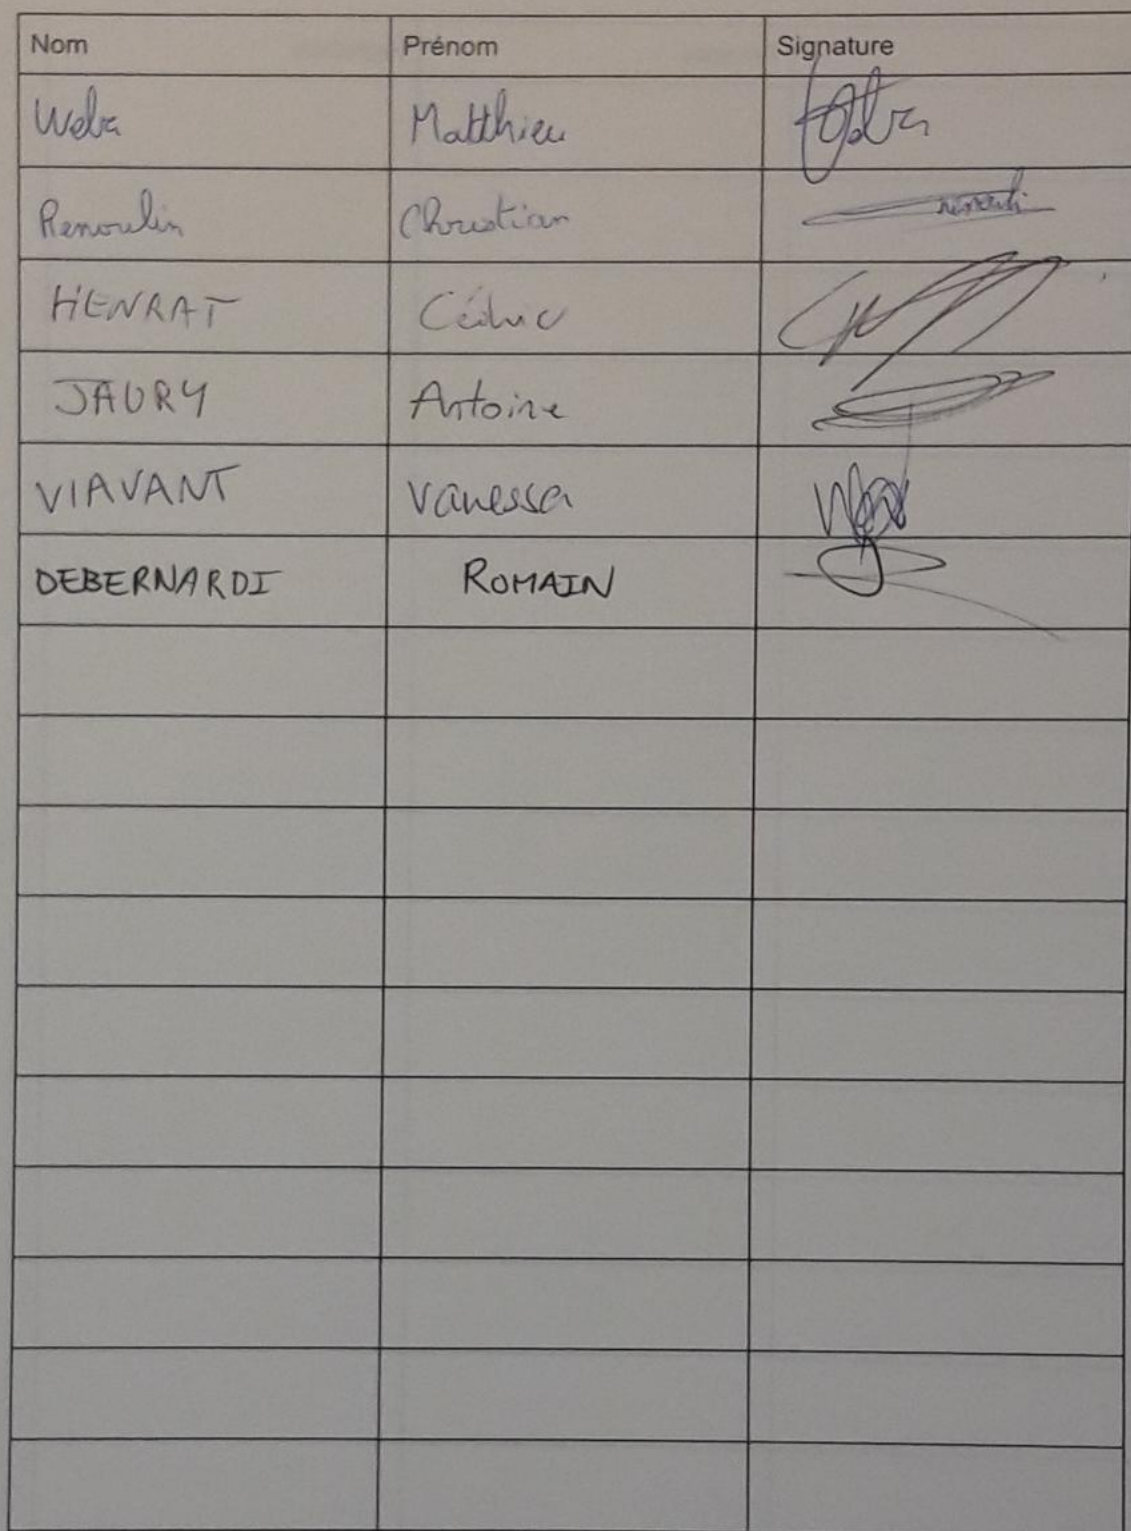 Nom Prénom Signature
Weba Matthieu
Renoulin Christian
HENRAT Cédric
JAURY Antoine
VIAVANT Vanessa
DEBERNARDI ROMAIN